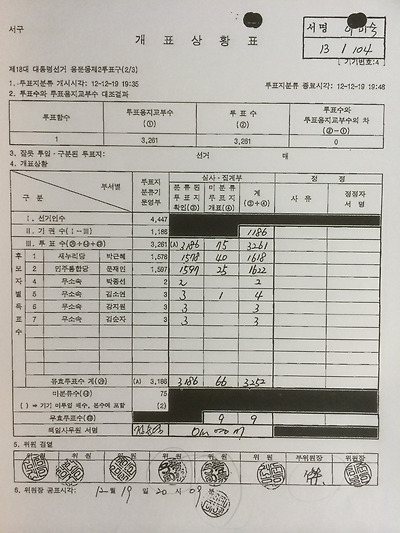 서구
개 표 상 황 표
서명
13 / 104
( 기기번호:4
제18대 대통령선거 용문동제2투표구(2/3)
1. 투표지분류 개시시각: 12-12-19 19:35
투표지분류 종료시각: 12-12-19 19:48
2. 투표수와 투표용지교부수 대조결과
투표함수 투표용지교부수 (①) 투 표 수 (②) 투표수와 투표용지교부수의 차 (②-①)
1 3,261 3,261 0
3. 잘못 투입·구분된 투표지: 선거 매
4. 개표상황
구 분 부서별 투표지 분류기 운영부 심사·집계부 정 정
분류된 투표지 확인(③) 미분류 투표지 개표(④) 계 (③+④) 사 유 정정자 서 명
Ⅰ. 선거인수 4,447
Ⅱ. 기 권 수 (Ⅰ-Ⅲ) 1,186 1186
Ⅲ. 투 표 수 3,261 (A) 3186 75 3261
후보자별득표수
1 새누리당 박근혜 1,578 1578 40 1618
2 민주통합당 문재인 1,597 1597 25 1622
4 무소속 박종선 2 2 2
5 무소속 김소연 3 3 1 4
6 무소속 강지원 3 3 3
7 무소속 김순자 3 3 3
유효투표수 계 (A) 3,186 3186 66 3252
미분류수 75
( ) ⇒ 기기 미투입 매수, 본수에 포함 (2)
무효투표수 9 9
책임사무원 서명
5. 위원 검열
위 원 위 원 위 원 위 원 위 원 위 원 부위원장 위 원 장
6. 위원장 공표시각: 12 월 19 일 20 시 09 분